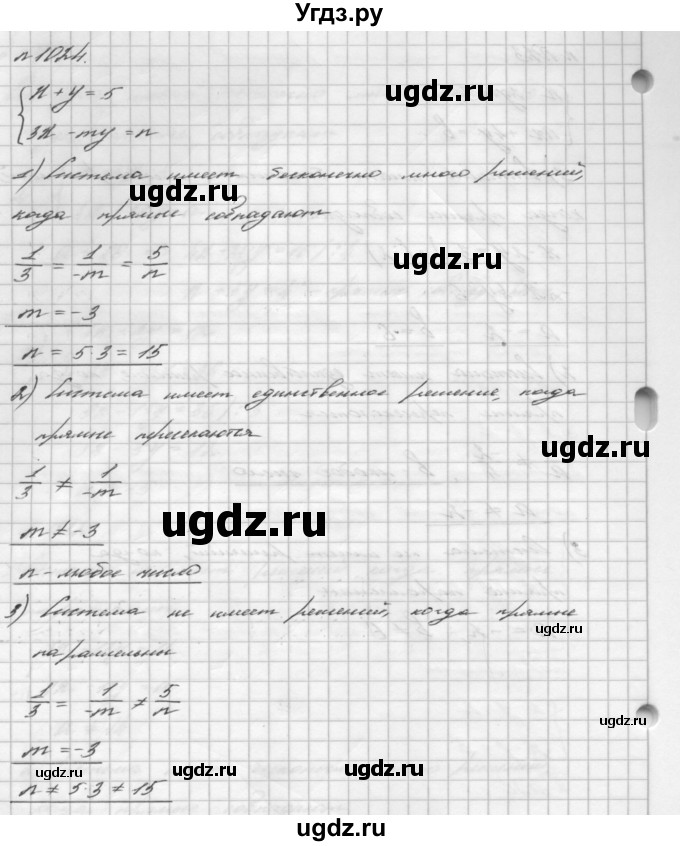 Угдз.ру
n 1024.
{ x + y = 5
3x - my = n
ugdz.ru
1) Система имеет бесконечно много решений,
ugdz.ru
когда прямые совпадают
1/3 = 1/-m = 5/n
ugdz.ru
m = -3
n = 5·3 = 15
2) Система имеет единственное решение, когда
прямые пересекаются
ugdz.ru
1/3 ≠ 1/-m
ugdz.ru
m ≠ -3
n - любое число
3) Система не имеет решений, когда прямые
параллельны
1/3 = 1/-m ≠ 5/n
ugdz.ru
m = -3
ugdz.ru
ugdz.ru
ugdz.ru
n ≠ 5·3 ≠ 15
ugdz.ru